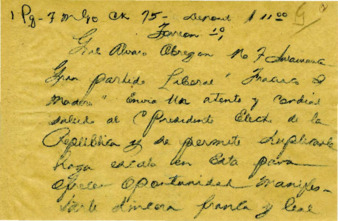 1 Pg- 7 M Go CK 75 - $11.00
Torreon
Gral Alvaro Obregon
Gran partido Liberal "Francisco I
Madero" Envia Ud atento y cordial
saludo al C Presidente Electo de la
Republica y se permite suplicarle
haga escala en esta para
ofrecer oportunidad manifes-
tarle sincera franca y leal